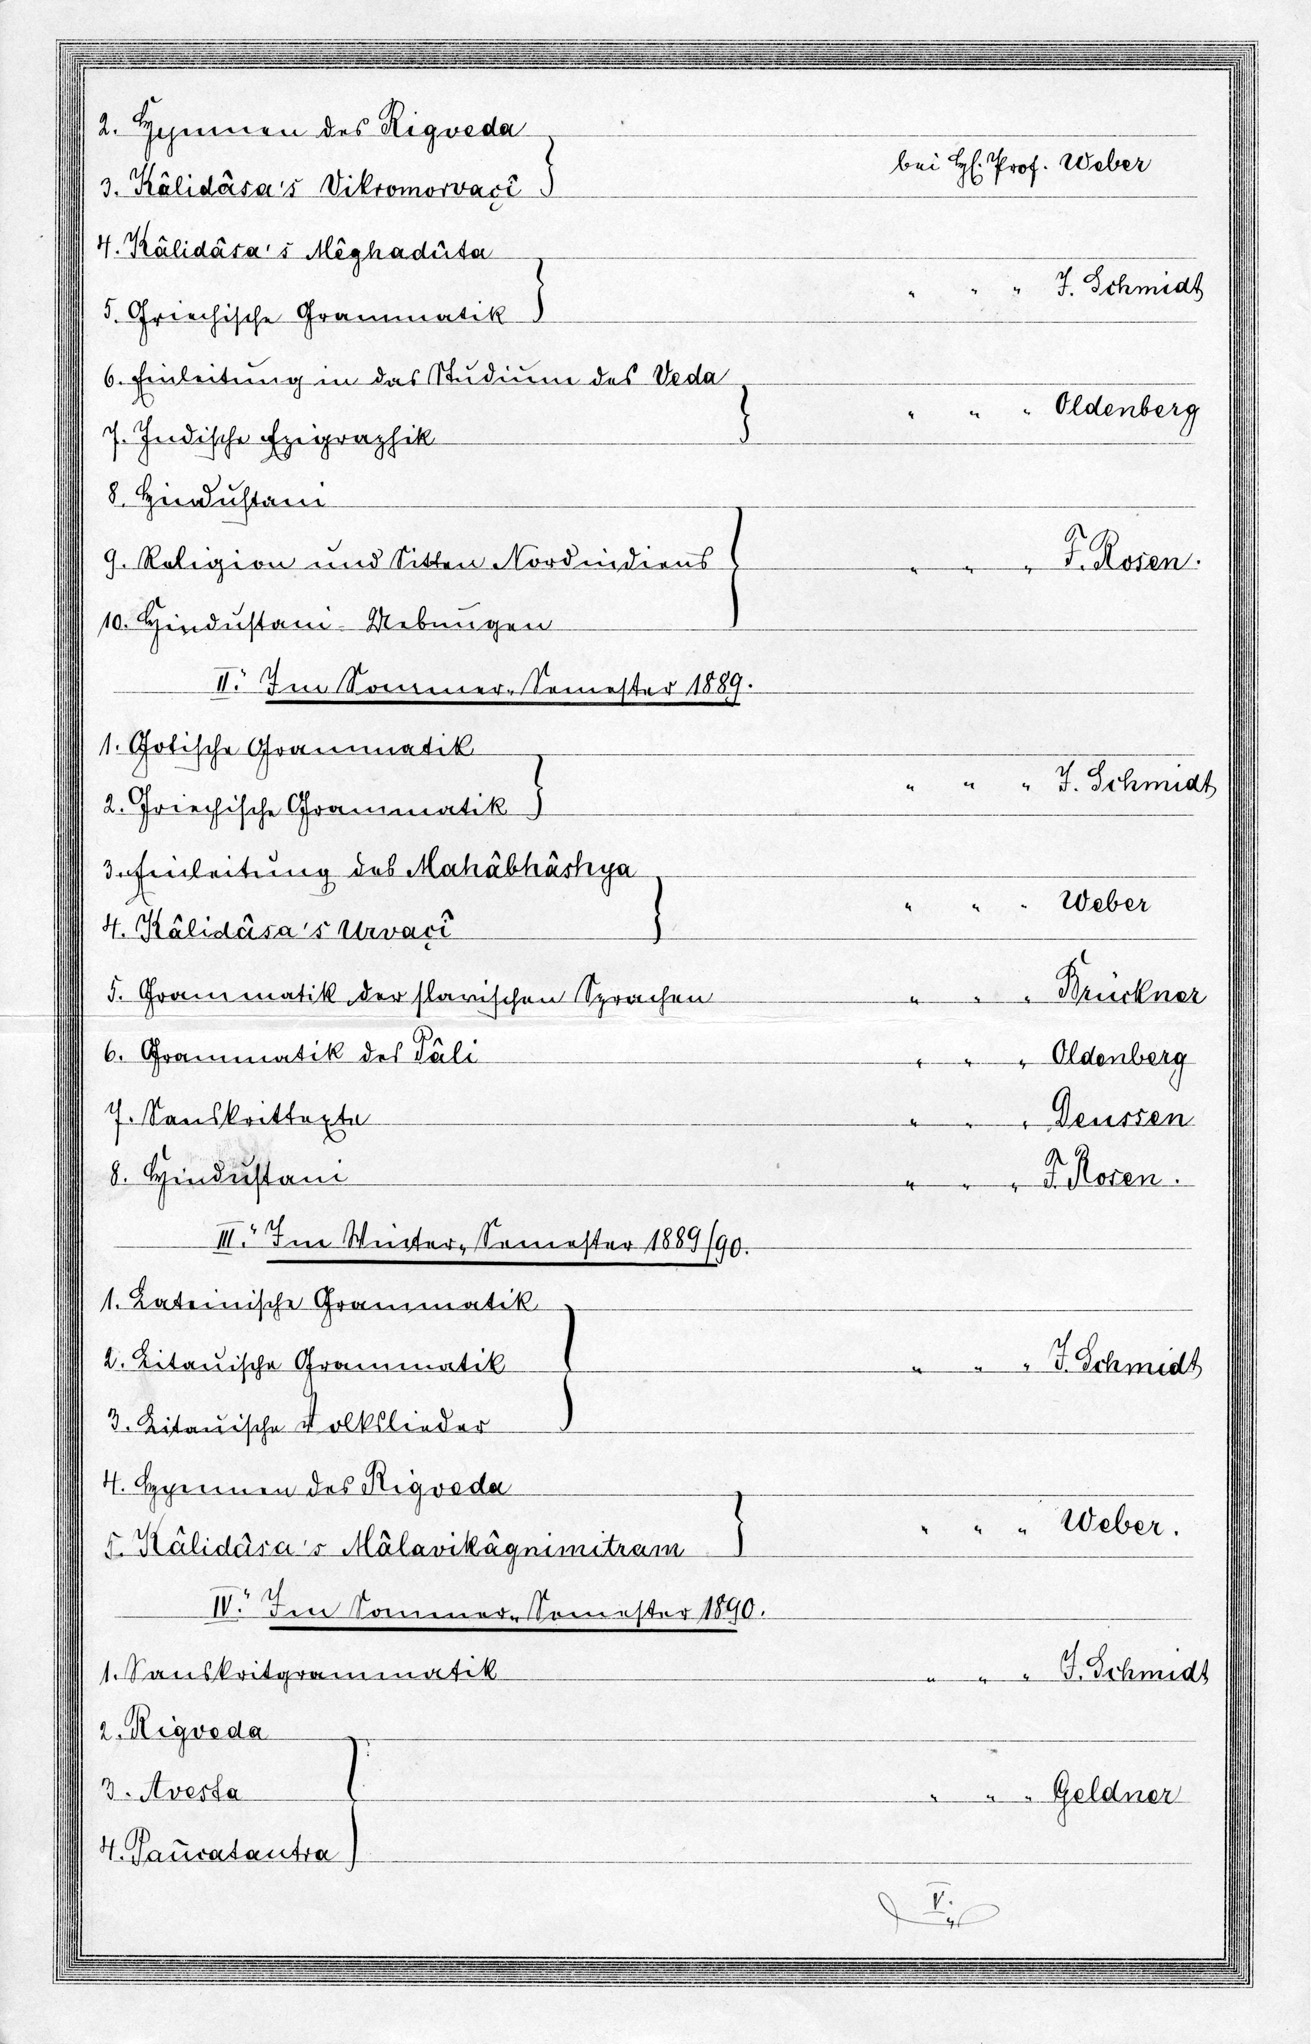 2. Hymnen des Rigveda
3. Kâlidâsa's Vikromorvaçî
bei H. Prof. Weber
4. Kâlidâsa's Mêghadûta
5. Griechische Grammatik
" " " J. Schmidt
6. Einleitung in das Studium des Veda
7. Indische Epigraphik
" " " Oldenberg
8. Hindustani
9. Religion und Sitten Nordindiens
" " " F. Rosen.
10. Hindustani-Uebungen
II. Im Sommer-Semester 1889.
1. Gotische Grammatik
2. Griechische Grammatik
" " " J. Schmidt
3. Einleitung des Mahâbhâshya
4. Kâlidâsa's Urvaçî
" " " Weber
5. Grammatik der slavischen Sprachen " " " Brückner
6. Grammatik des Pâli " " " Oldenberg
7. Sanskrittexte " " " Deussen
8. Hindustani " " " F. Rosen.
III. Im Winter-Semester 1889/90.
1. Lateinische Grammatik
2. Litauische Grammatik
" " " J. Schmidt
3. Litauische Volkslieder
4. Hymnen des Rigveda
5. Kâlidâsa's Mâlavikâgnimitram
" " " Weber.
IV. Im Sommer-Semester 1890.
1. Sanskritgrammatik " " " J. Schmidt
2. Rigveda
3. Avesta
" " " Geldner
4. Pañcatantra
V.